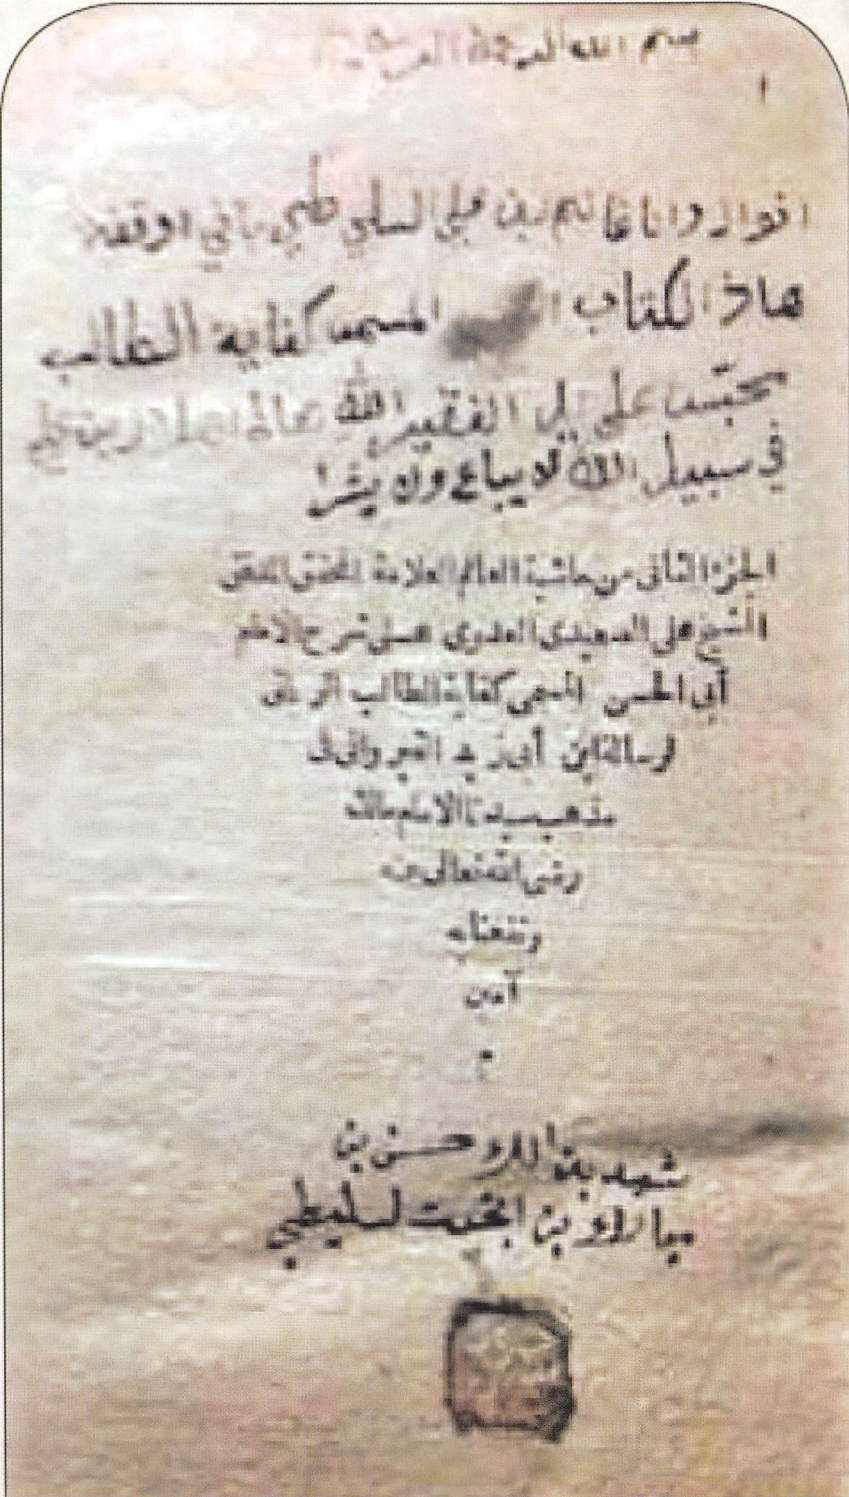 بسم الله الرحمن الرحيم
١
اقول وانا غانم بن علي السليطي بأني اوقفة
هاذ الكتاب المسما كفاية الطالب
محبّسا على يد الفقير الله
في سبيل الله لا يباع ولا يشرا
الجزء الثانى من حاشية العالم العلامة المحقق المدقق
الشيخ على الصعيدى العدوى على شرح الامام
أبى الحسن المسمى كفاية الطالب الربانى
لرسالة ابن أبى زيد القيروانى فى
مذهب سيدنا الامام مالك
رضى الله تعالى عنه
ونفعنا به
آمين
شهد بذالك حسن بن
مبارك بن البخيت لسليطي